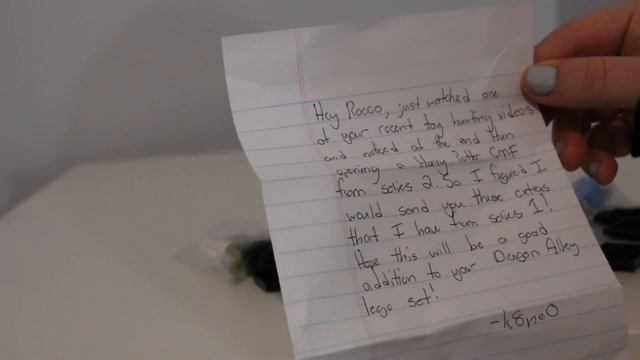 Hey Rocco, just watched one
of your recent toy hunting videos
and noticed at the end than
opening a Harry Potter CMF
from series 2. So I figured I
would send you these extras
that I have from series 1!
Hope this will be a good
addition to your Diagon Alley
lego set!
-k8ne0